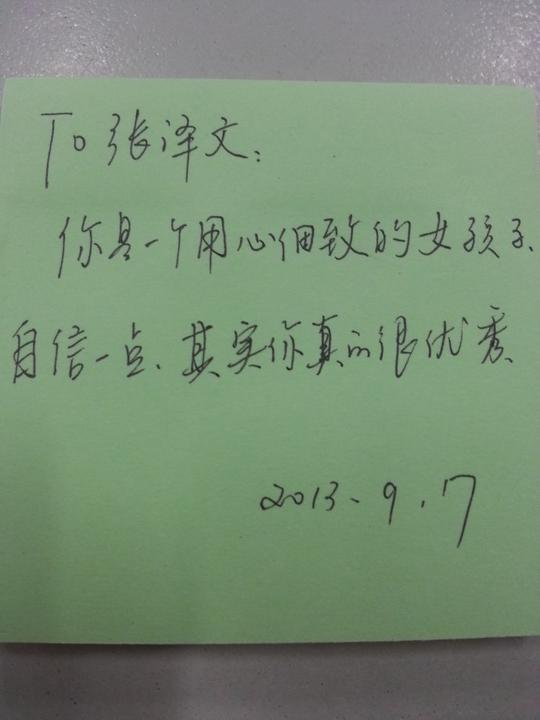 To 张泽文:
你是一个用心细致的女孩子、
自信一点、其实你真的很优秀、
2013、9.17